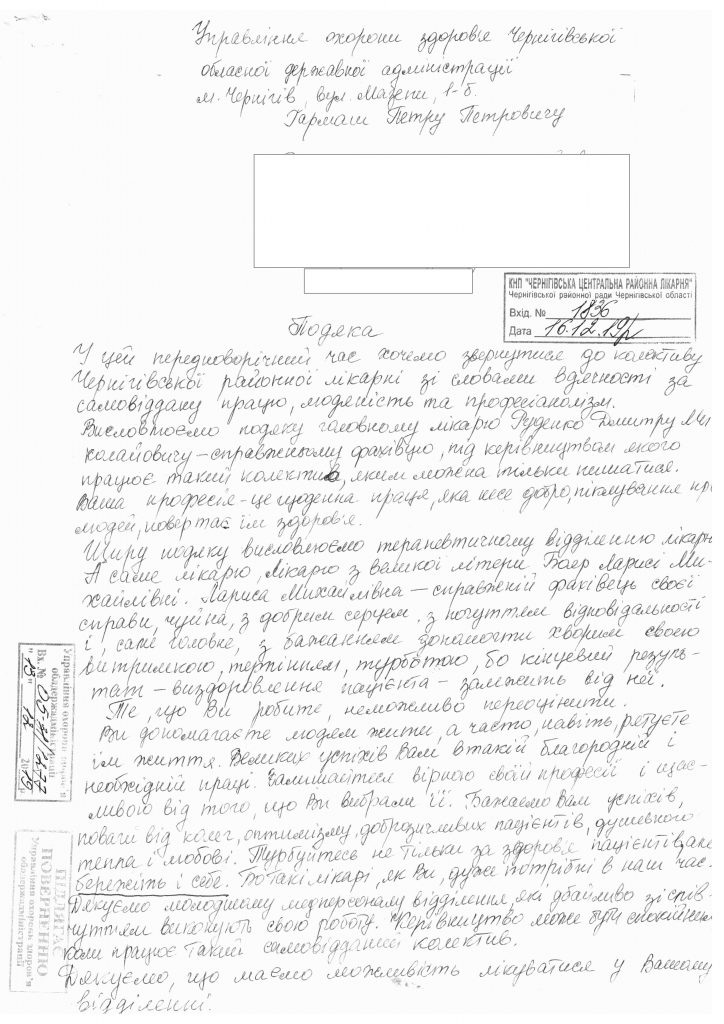 Управління охорони здоров'я Чернігівської
обласної державної адміністрації
м. Чернігів, вул. Мазепи, 1-б.
Гармаш Петру Петровичу
КНП "ЧЕРНІГІВСЬКА ЦЕНТРАЛЬНА РАЙОННА ЛІКАРНЯ"
Чернігівської районної ради Чернігівської області
Вхід. № 1836
Дата 16.12.19р
Подяка
У цей передноворічний час хочемо звернутися до колективу
Чернігівської районної лікарні зі словами вдячності за
самовіддану працю, людяність та професіоналізм.
Висловлюємо подяку головному лікарю Руденко Дмитру Ми
колайовичу – справжньому фахівцю, під керівництвом якого
працює такий колектив, яким можна тільки пишатися.
Ваша професія – це щоденна праця, яка несе добро, піклування про
людей, повертає їм здоров'я.
Щиру подяку висловлюємо терапевтичному відділенню лікарні
А саме лікарю, Лікарю з великої літери Боєр Ларисі Ми-
хайлівні. Лариса Михайлівна – справжній фахівець своєї
справи, чуйна, з добрим серцем, з почуттям відповідальності
і, саме головне, з бажанням допомогти хворим своєю
витримкою, терпінням, турботою, бо кінцевий резуль-
тат – виздоровлення пацієнта – залежить від неї.
Те, що Ви робите, неможливо переоцінити.
Ви допомагаєте людям жити, а часто, навіть, рятуєте
їм життя. Великих успіхів Вам в такій благородній і
необхідній праці. Залишайтеся вірною своїй професії і щас-
ливою від того, що Ви вибрали її. Бажаємо Вам успіхів,
поваги від колег, оптимізму, доброзичливих пацієнтів, душевного
тепла і любові. Турбуйтесь не тільки за здоров'я пацієнтів, але
бережіть і себе. Бо такі лікарі, як Ви, дуже потрібні в наш час.
Дякуємо молодшому медперсоналу відділення, які дбайливо зі спів-
чуттям виконують свою роботу. Керівництво може бути спокійним
коли працює такий самовідданий колектив.
Дякуємо, що маємо можливість лікуватися у Вашому
відділенні.
Управління охорони здоров'я
облдержадміністрації
Вх. №
ПІДЛЯГАЄ
ПОВЕРНЕННЮ
Управління охорони здоров'я
облдержадміністрації